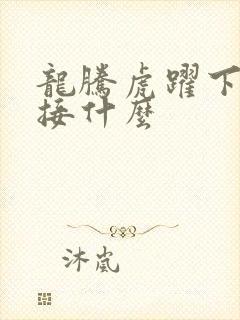 龍騰虎躍下
接什麼
沐嵐